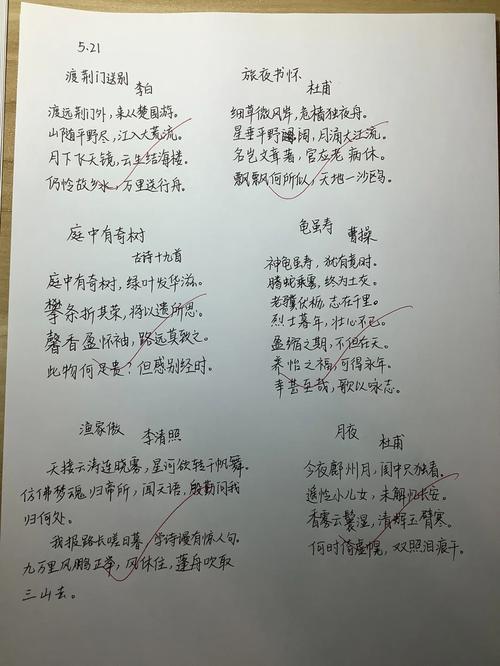 5.21
渡荆门送别
李白
渡远荆门外，来从楚国游。
山随平野尽，江入大荒流。
月下飞天镜，云生结海楼。
仍怜故乡水，万里送行舟。
旅夜书怀
杜甫
细草微风岸，危樯独夜舟。
星垂平野阔，月涌大江流。
名岂文章著，官应老病休。
飘飘何所似，天地一沙鸥。
庭中有奇树
古诗十九首
庭中有奇树，绿叶发华滋。
攀条折其荣，将以遗所思。
馨香盈怀袖，路远莫致之。
此物何足贵？但感别经时。
龟虽寿
曹操
神龟虽寿，犹有竟时。
腾蛇乘雾，终为土灰。
老骥伏枥，志在千里。
烈士暮年，壮心不已。
盈缩之期，不但在天。
养怡之福，可得永年。
幸甚至哉，歌以咏志。
渔家傲
李清照
天接云涛连晓雾，星河欲转千帆舞。
仿佛梦魂归帝所，闻天语，殷勤问我
归何处。
我报路长嗟日暮，学诗谩有惊人句。
九万里风鹏正举，风休住，蓬舟吹取
三山去。
月夜
杜甫
今夜鄜州月，闺中只独看。
遥怜小儿女，未解忆长安。
香雾云鬟湿，清辉玉臂寒。
何时倚虚幌，双照泪痕干。